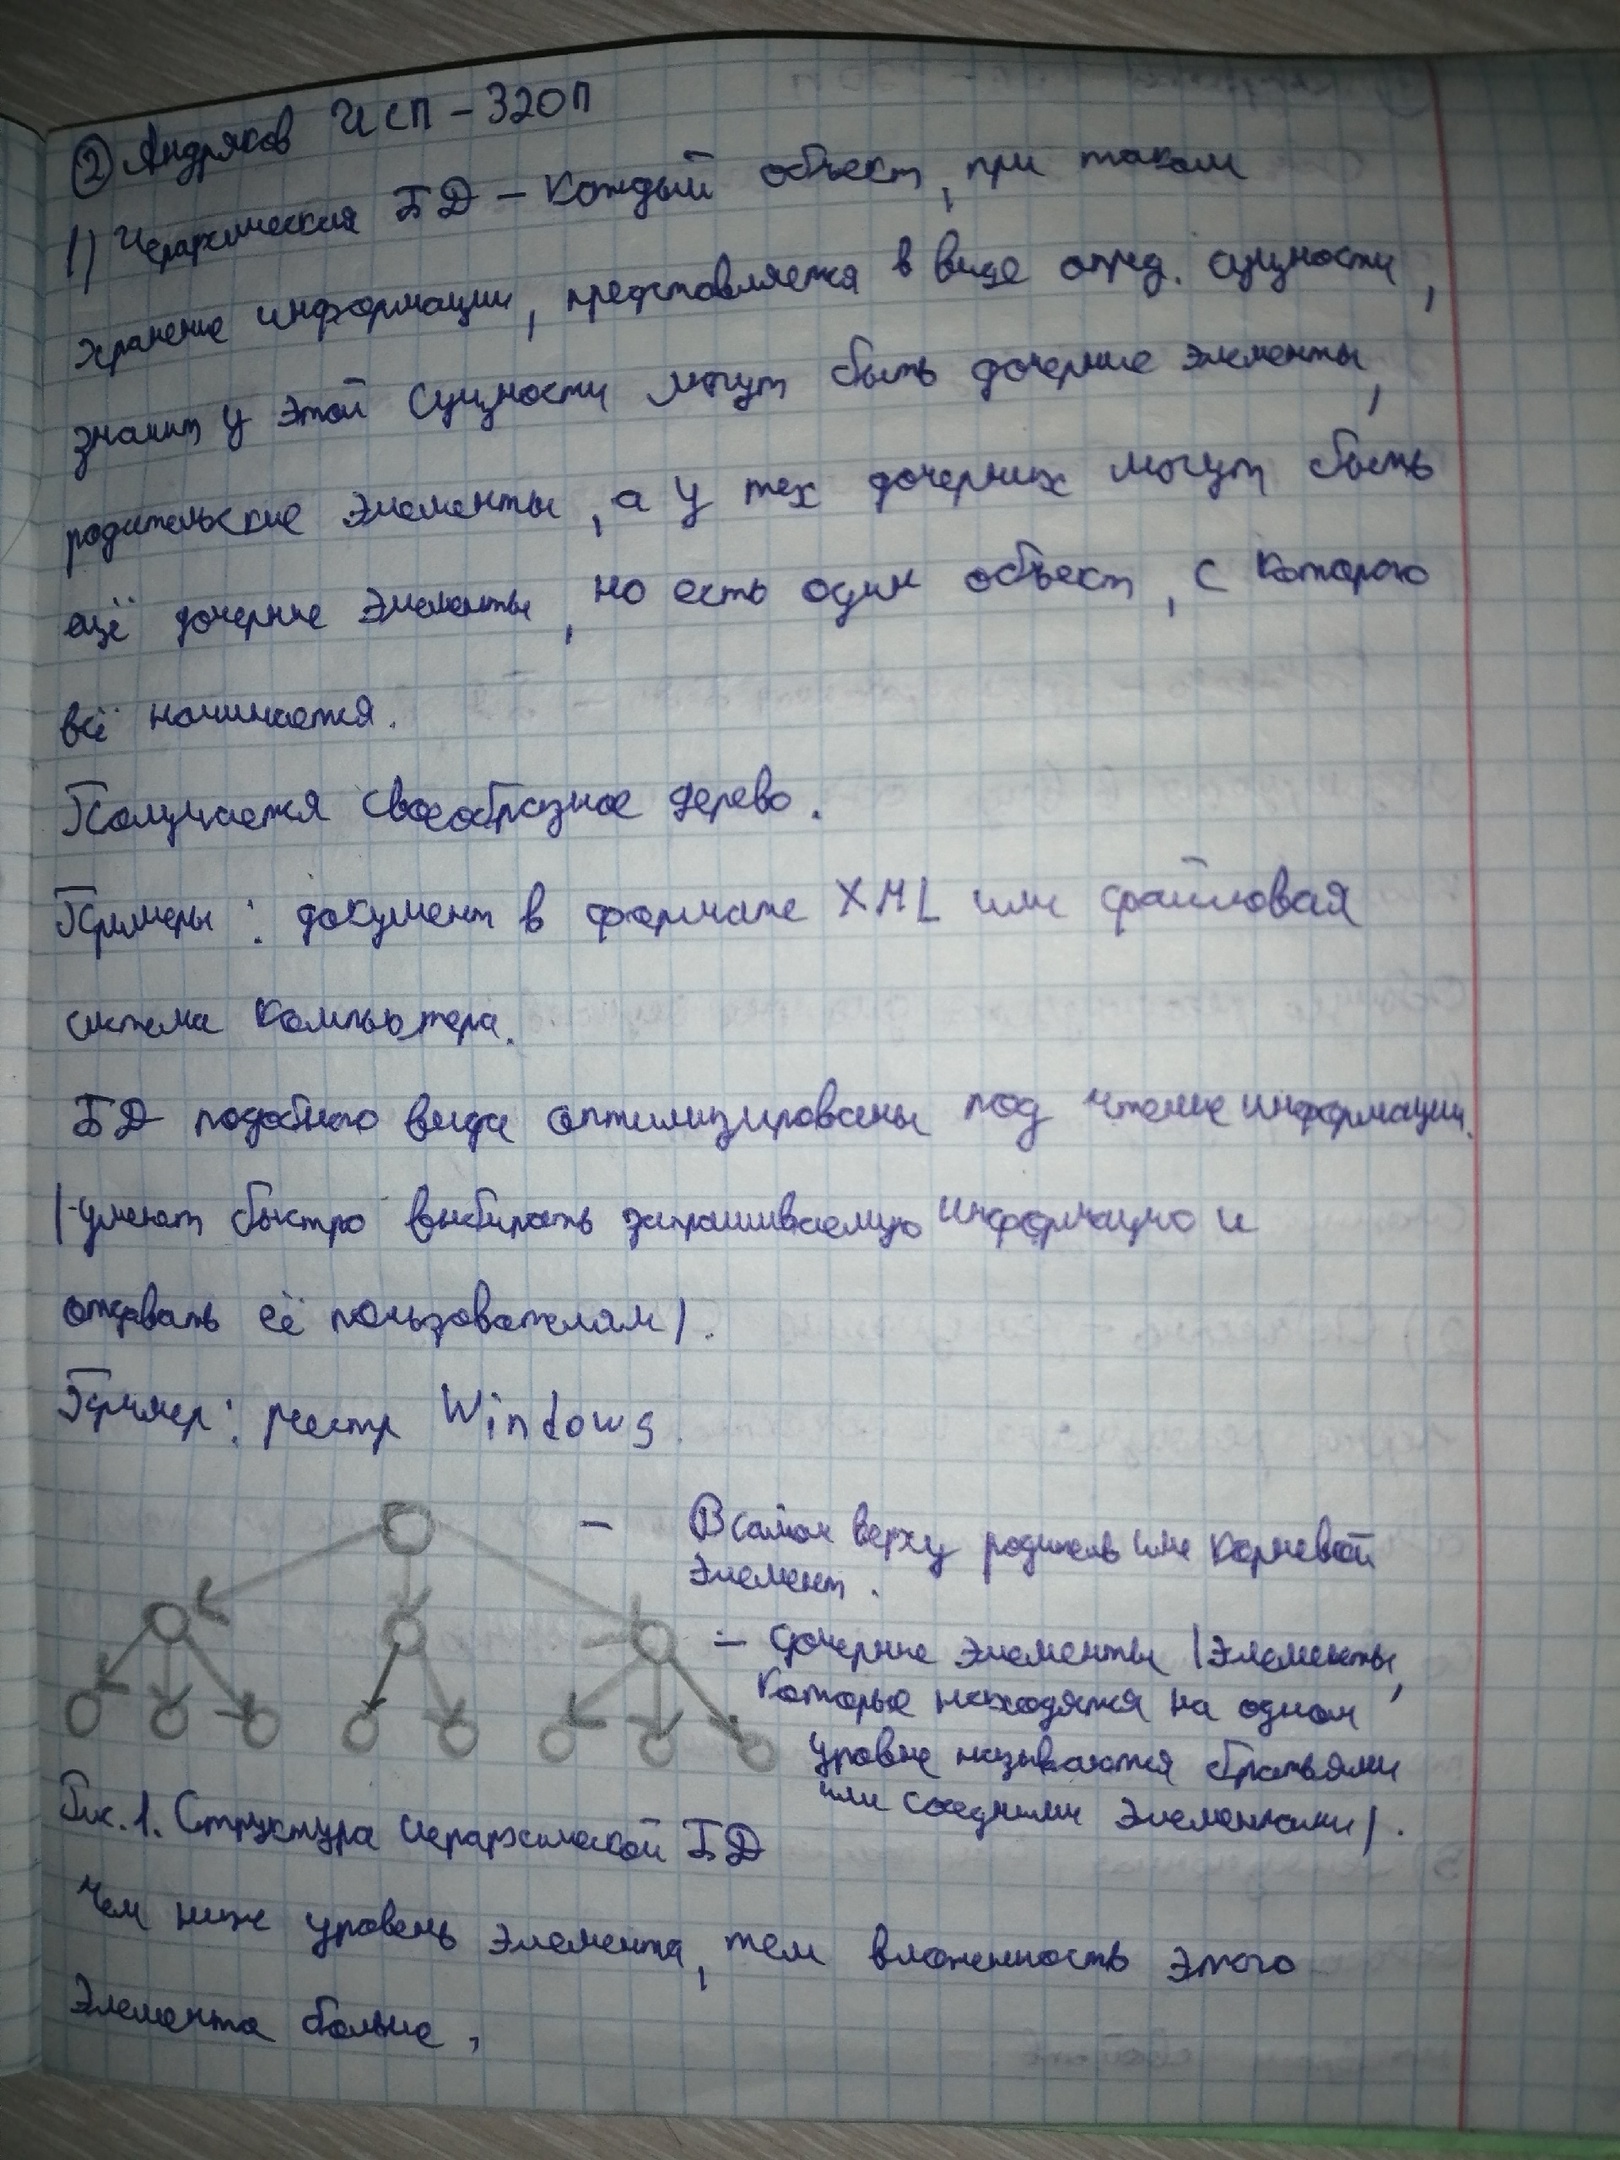 ② Андряков ИСП - 320П
1) Иерархическая БД - Каждый объект, при таком
хранение информации, представляется в виде опред. сущности,
значит у этой сущности могут быть дочерние элементы,
родительские элементы, а у тех дочерних могут быть
ещё дочерние элементы, но есть один объект, с которого
всё начинается.
Получается своеобразное дерево.
Примеры: документ в формате XML или файловая
система компьютера.
БД подобного вида оптимизированы под чтение информации.
(умеют быстро выбирать запрашиваемую информацию и
отдавать её пользователям).
Пример: реестр Windows.
- В самом верху родитель или корневой
элемент.
- дочерние элементы (элементы,
которые находятся на одном
уровне называются братьями
или соседними элементами).
Рис. 1. Структура иерархической БД
Чем ниже уровень элемента, тем вложенность этого
элемента больше,